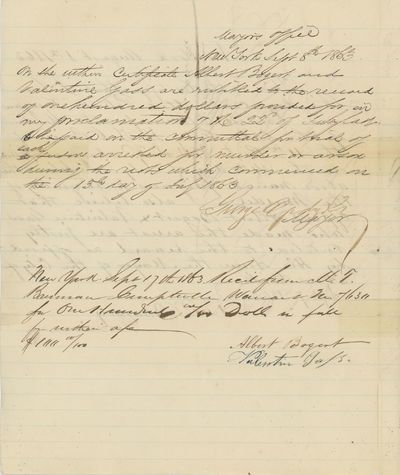 Mayors Office
New York Sept 8th 1863
On the within Certificate Albert Bogert and
Valentine are entitled to the reward
of one hundred dollars provided for, in
my proclamation of the of July
to be paid on the committal for trial of
each person arrested for murder or arson
during the riots which commenced on
the 13th day of July 1863
George Opdyke
Mayor
New York Sept 17th 1863. Recd from M. T.
Brennan Comptroller Warrant No
for One Hundred 00/100 Dolls in full
for within
$100 00/100
Albert Bogert
Valentine